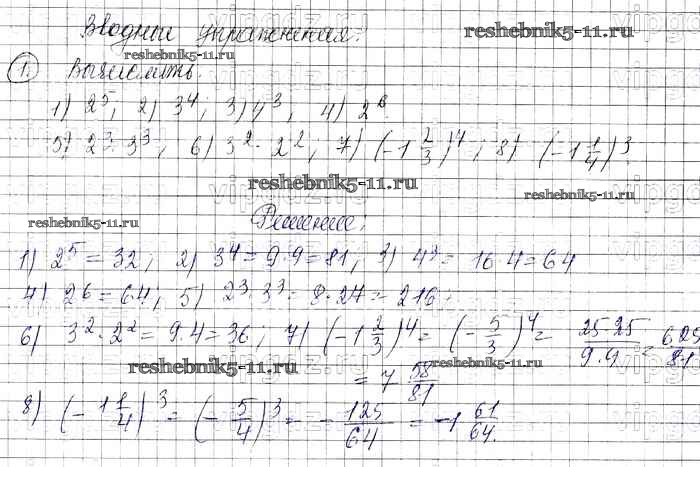 Вводные упражнения. reshebnik5-11.ru
reshebnik5-11.ru
1. Вычислить.
1) 2⁵; 2) 3⁴; 3) 4³; 4) 2⁶
5) 2³·3³; 6) 3²·2²; 7) (-1 2/3)⁴; 8) (-1 1/4)³.
reshebnik5-11.ru
reshebnik5-11.ru
reshebnik5-11.ru Решение:
1) 2⁵ = 32; 2) 3⁴ = 9·9 = 81; 3) 4³ = 16·4 = 64
4) 2⁶ = 64; 5) 2³·3³ = 8·27 = 216;
6) 3²·2² = 9·4 = 36; 7) (-1 2/3)⁴ = (-5/3)⁴ = 25·25/9·9 = 625/81
reshebnik5-11.ru = 7 58/81 reshebnik5-11.ru
8) (-1 1/4)³ = (-5/4)³ = -125/64 = -1 61/64.